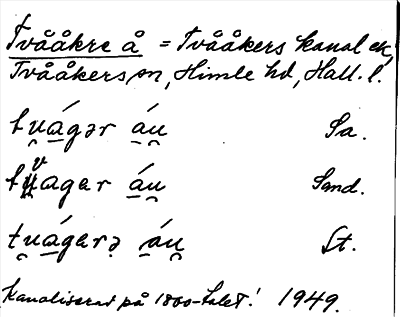 Tvååkre å = Tvååkers kanal ek,
Tvååkers sn, Himle hd, Hall. l.
tu̯ágər áu̯ Sa.
tvagər áu̯ Sand.
tu̯ágarə áu̯ St.
Kanaliserat på 1800-talet! 1949.